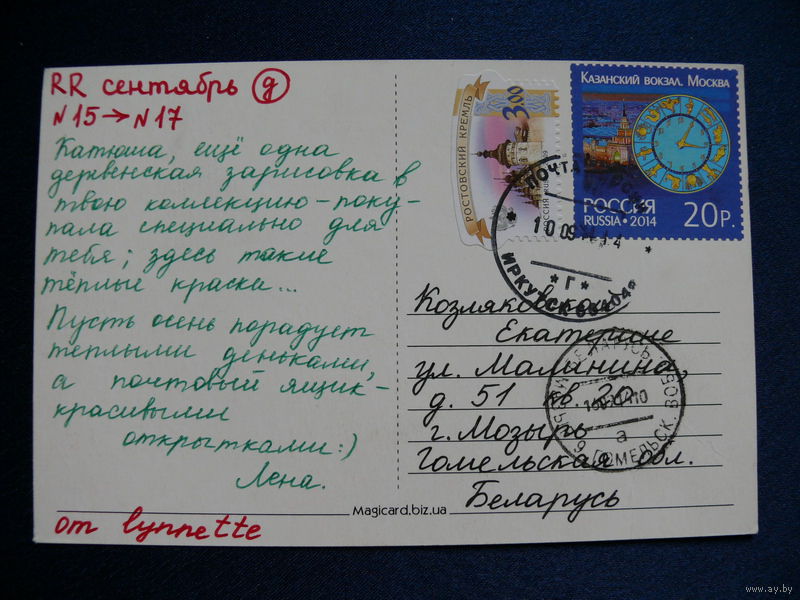 RR сентябрь д
N15→N17
Катюша, ещё одна
деревенская зарисовка в
твою коллекцию – поку-
пала специально для
тебя; здесь такие
тёплые краски...
Пусть осень порадует
теплыми деньками,
а почтовый ящик –
красивыми
открытками :)
Лена.
от lynnette
Magicard.biz.ua
РОСТОВСКИЙ КРЕМЛЬ
3.00
РОССИЯ
КАЗАНСКИЙ ВОКЗАЛ. МОСКВА
РОССИЯ
RUSSIA • 2014
20 Р.
ПОЧТА
10 09
* Г *
ИРКУТСК
Козляковской
Екатерине
ул. Малинина,
д. 51 кв. 20
г. Мозырь
Гомельская обл.
Беларусь
БЕЛАРУСЬ
а
ГОМЕЛЬСК. ВОБЛ
www.ay.by